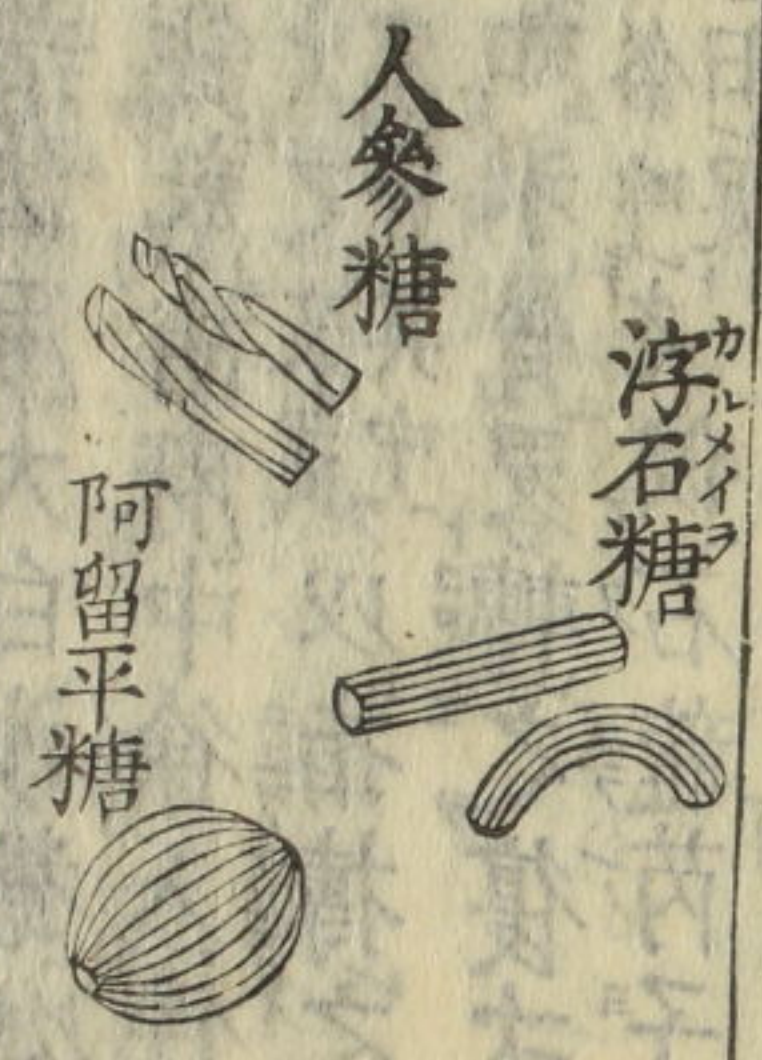 浮石糖
カルメイラ
人參糖
阿留平糖